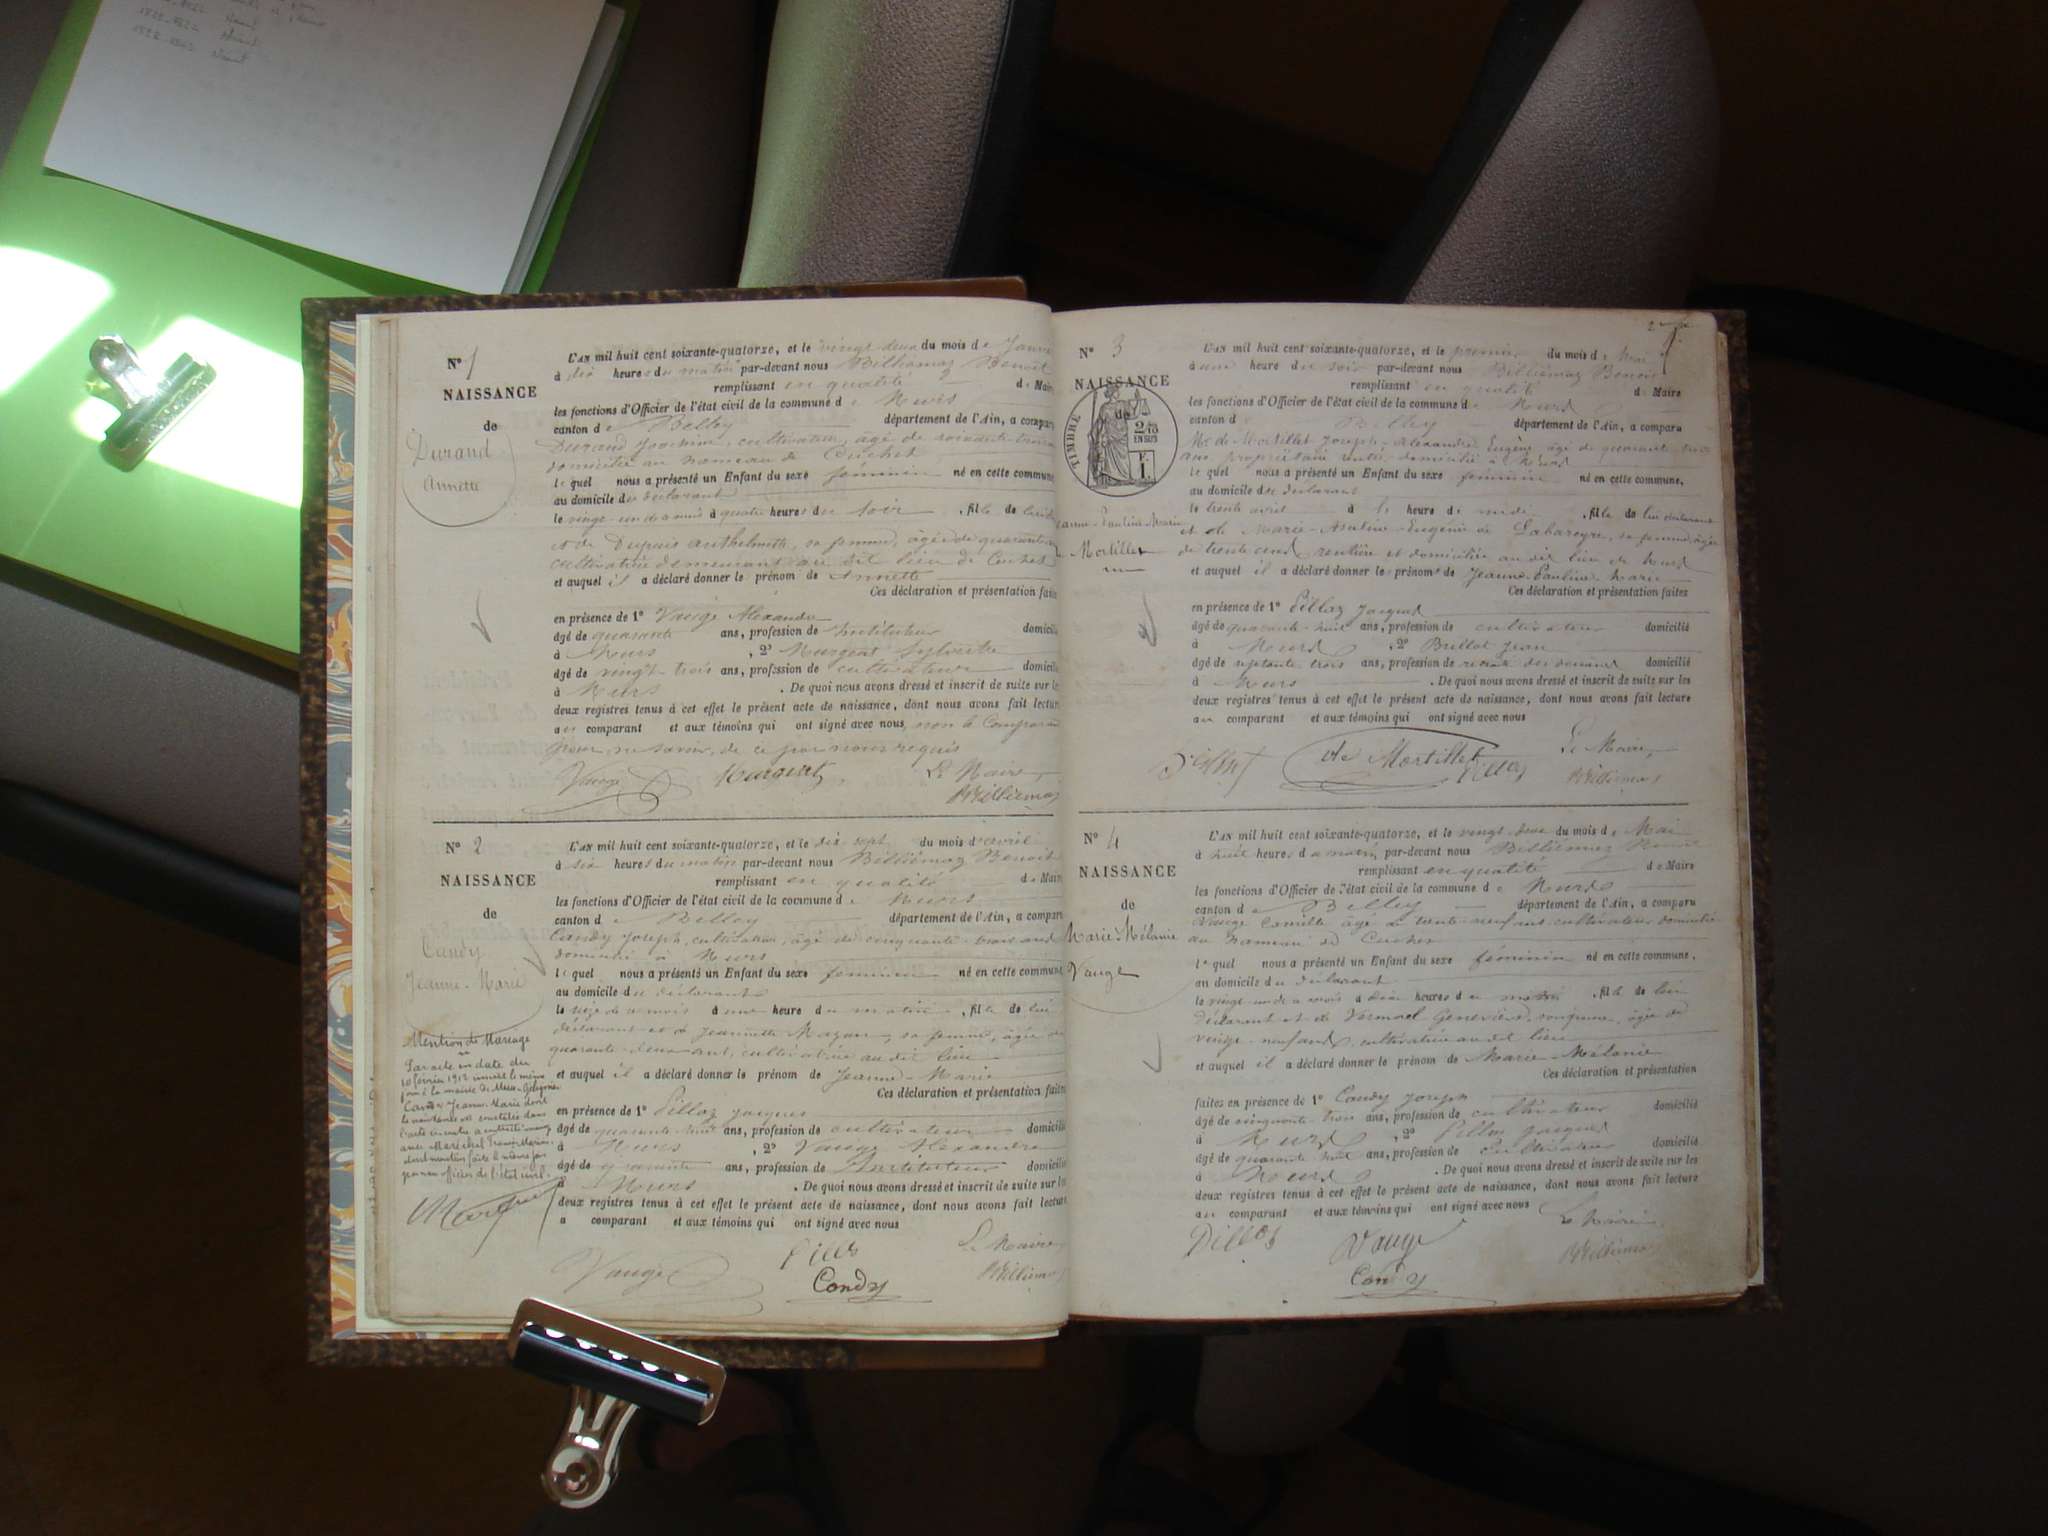 Néant
Néant
N° 1
NAISSANCE
de
Durand
Annette
L'AN mil huit cent soixante-quatorze, et le vingt deux du mois de
à dix heures du matin par-devant nous Billiémaz Benoit
remplissant en qualité de Maire
les fonctions d'Officier de l'état civil de la commune de Murs
canton de Belley département de l'Ain, a comparu
Durand Joachim, cultivateur, âgé de soixante-trois
domicilié au hameau de Cuchet
lequel nous a présenté un Enfant du sexe féminin né en cette commune,
au domicile du déclarant
le vingt-un de ce mois à quatre heures du soir, fille de
et de Dupuis Anthelmette, sa femme, âgée de quarante
cultivatrice demeurant au dit lieu de Cuchet
et auquel il a déclaré donner le prénom de Annette
Ces déclaration et présentation faites
en présence de 1° Vauge Alexandre
âgé de quarante ans, profession de Instituteur domicilié
à Murs, 2° Murgeat Sylvestre
âgé de vingt-trois ans, profession de cultivateur domicilié
à Murs. De quoi nous avons dressé et inscrit de suite sur les
deux registres tenus à cet effet le présent acte de naissance, dont nous avons fait lecture
au comparant et aux témoins qui ont signé avec nous, non le Comparant
pour ne savoir, de ce par nous requis
Vauge Murgeat Le Maire
Billiemaz
N° 2
NAISSANCE
de
Candy
Jeanne-Marie
Mention de Mariage
Par acte en date du
10 février 1912 inscrit le même
jour à la mairie de
Candy Jeanne Marie dont
la naissance est constatée dans
l'acte ci-contre a contracté mariage
avec Maréchal
dont mention faite le même jour
par nous officier de l'état civil.
L'AN mil huit cent soixante-quatorze, et le dix sept du mois d'avril
à six heures du matin par-devant nous Billiémaz Benoit
remplissant en qualité de Maire
les fonctions d'Officier de l'état civil de la commune de Murs
canton de Belley département de l'Ain, a comparu
Candy Joseph, cultivateur, âgé de cinquante-trois ans
domicilié à Murs
lequel nous a présenté un Enfant du sexe féminin né en cette commune
au domicile du déclarant
le seize de ce mois à une heure du matin, fille de lui
déclarant et de Jeannette Mazuir, sa femme, âgée de
quarante-deux ans, cultivatrice au dit lieu
et auquel il a déclaré donner le prénom de Jeanne-Marie
Ces déclaration et présentation faites
en présence de 1° Pilloz Jacques
âgé de quarante-huit ans, profession de cultivateur domicilié
à Murs, 2° Vauge Alexandre
âgé de quarante ans, profession de Instituteur domicilié
à Murs. De quoi nous avons dressé et inscrit de suite sur les
deux registres tenus à cet effet le présent acte de naissance, dont nous avons fait lecture
a comparant et aux témoins qui ont signé avec nous
Vauge Pilloz Le Maire
Candy Billiemaz
N° 3
NAISSANCE
de
TIMBRE
2/10
EN SUS
F.
1.
Jeanne-Pauline-Marie
de Mortillet
L'AN mil huit cent soixante-quatorze, et le premier du mois de Mai
à une heure du soir par-devant nous Billiémaz Benoit
remplissant en qualité de Maire
les fonctions d'Officier de l'état civil de la commune de Murs
canton de Belley département de l'Ain, a comparu
Mr de Mortillet Joseph-Alexandre Eugène âgé de quarante-trois
ans propriétaire rentier, domicilié à Murs
lequel nous a présenté un Enfant du sexe féminin né en cette commune,
au domicile de déclarant
le trente avril à heure de midi, fille de lui déclarant
et de Marie-Eugénie de Labareyre, sa femme âgée
de trente cinq rentière et domiciliée au dit lieu de Murs
et auquel il a déclaré donner le prénoms de Jeanne-Pauline-Marie
Ces déclaration et présentation faites
en présence de 1° Pilloz Jacques
âgé de quarante-huit ans, profession de cultivateur domicilié
à Murs, 2° Brillot Jean
âgé de septante trois ans, profession de retraité des douanes domicilié
à Murs. De quoi nous avons dressé et inscrit de suite sur les
deux registres tenus à cet effet le présent acte de naissance, dont nous avons fait lecture
au comparant et aux témoins qui ont signé avec nous
de Mortillet Pilloz Le Maire,
Billiemaz
N° 4
NAISSANCE
de
Marie-Mélanie
Vauge
L'AN mil huit cent soixante-quatorze, et le vingt-deux du mois de Mai
à huit heures du matin, par-devant nous Billiémaz Benoit
remplissant en qualité de Maire
les fonctions d'Officier de l'état civil de la commune de Murs
canton de Belley département de l'Ain, a comparu
Vauge Camille âgé de trente-neuf ans cultivateur domicilié
au hameau de Cuchet
lequel nous a présenté un Enfant du sexe féminin né en cette commune,
au domicile du déclarant
le vingt-un de ce mois à dix heures du matin, fille de lui
déclarant et de Geneviève, son épouse, âgée de
vingt-neuf ans cultivatrice au dit lieu
et auquel il a déclaré donner le prénom de Marie-Mélanie
Ces déclaration et présentation
faites en présence de 1° Candy Joseph
âgé de cinquante-trois ans, profession de cultivateur domicilié
à Murs, 2° Pilloz Jacques
âgé de quarante-huit ans, profession de Cultivateur domicilié
à Murs. De quoi nous avons dressé et inscrit de suite sur les
deux registres tenus à cet effet le présent acte de naissance, dont nous avons fait lecture
au comparant et aux témoins qui ont signé avec nous
Pilloz Vauge Le Maire
Candy Billiemaz